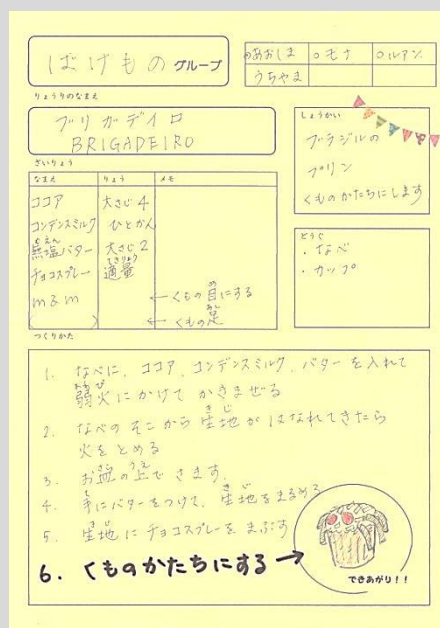 ばけもの グループ
○あおしま ○モナ ○ルアン
うちやま
りょうりのなまえ
ブリガデイロ
BRIGADEIRO
しょうかい
ブラジルの
プリン
くものかたちにします
ざいりょう
なまえ りょう メモ
ココア 大さじ4
コンデンスミルク ひとかん
無塩バター 大さじ2
チョコスプレー 適量
m&m ←くもの目にする
( ) ←くもの足
どうぐ
・なべ
・カップ
つくりかた
1. なべに、ココア、コンデンスミルク、バターを入れて
弱火にかけてかきまぜる
2. なべのそこから生地がはなれてきたら
火をとめる
3. お皿の上でさます。
4. 手にバターをつけて、生地をまるめる
5. 生地にチョコスプレーをまぶす
6. くものかたちにする→
できあがり!!